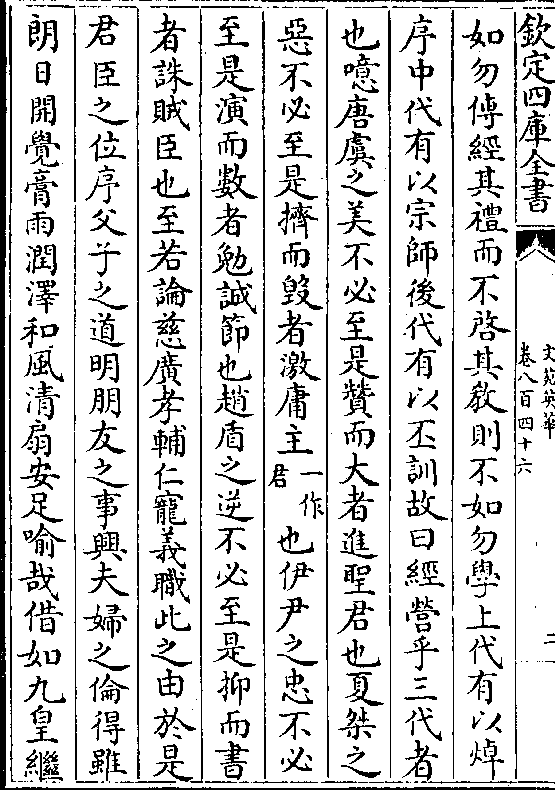 欽定四庫全書
文苑英華
卷八百四十六
二
如勿傳經其禮而不啓其敎則不如勿學上代有以焯
序中代有以宗師後代有以丕訓故曰經營乎三代者
也噫唐虞之美不必至是贊而大者進聖君也夏桀之
惡不必至是擠而毀者激庸主一作君也伊尹之忠不必
至是演而數者勉誠節也趙盾之逆不必至是抑而書
者誅賊臣也至若論慈廣孝輔仁寵義職此之由於是
君臣之位序父子之道明朋友之事興夫婦之倫得雖
朗日開覺膏雨潤澤和風清扇安足喻哉借如九皇繼